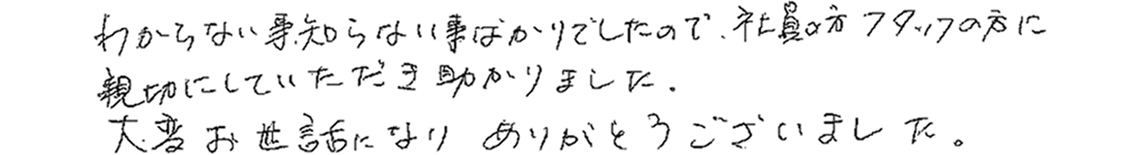 わからない事知らない事ばかりでしたので、社員の方スタッフの方に
親切にしていただき助かりました。
大変お世話になり ありがとうございました。